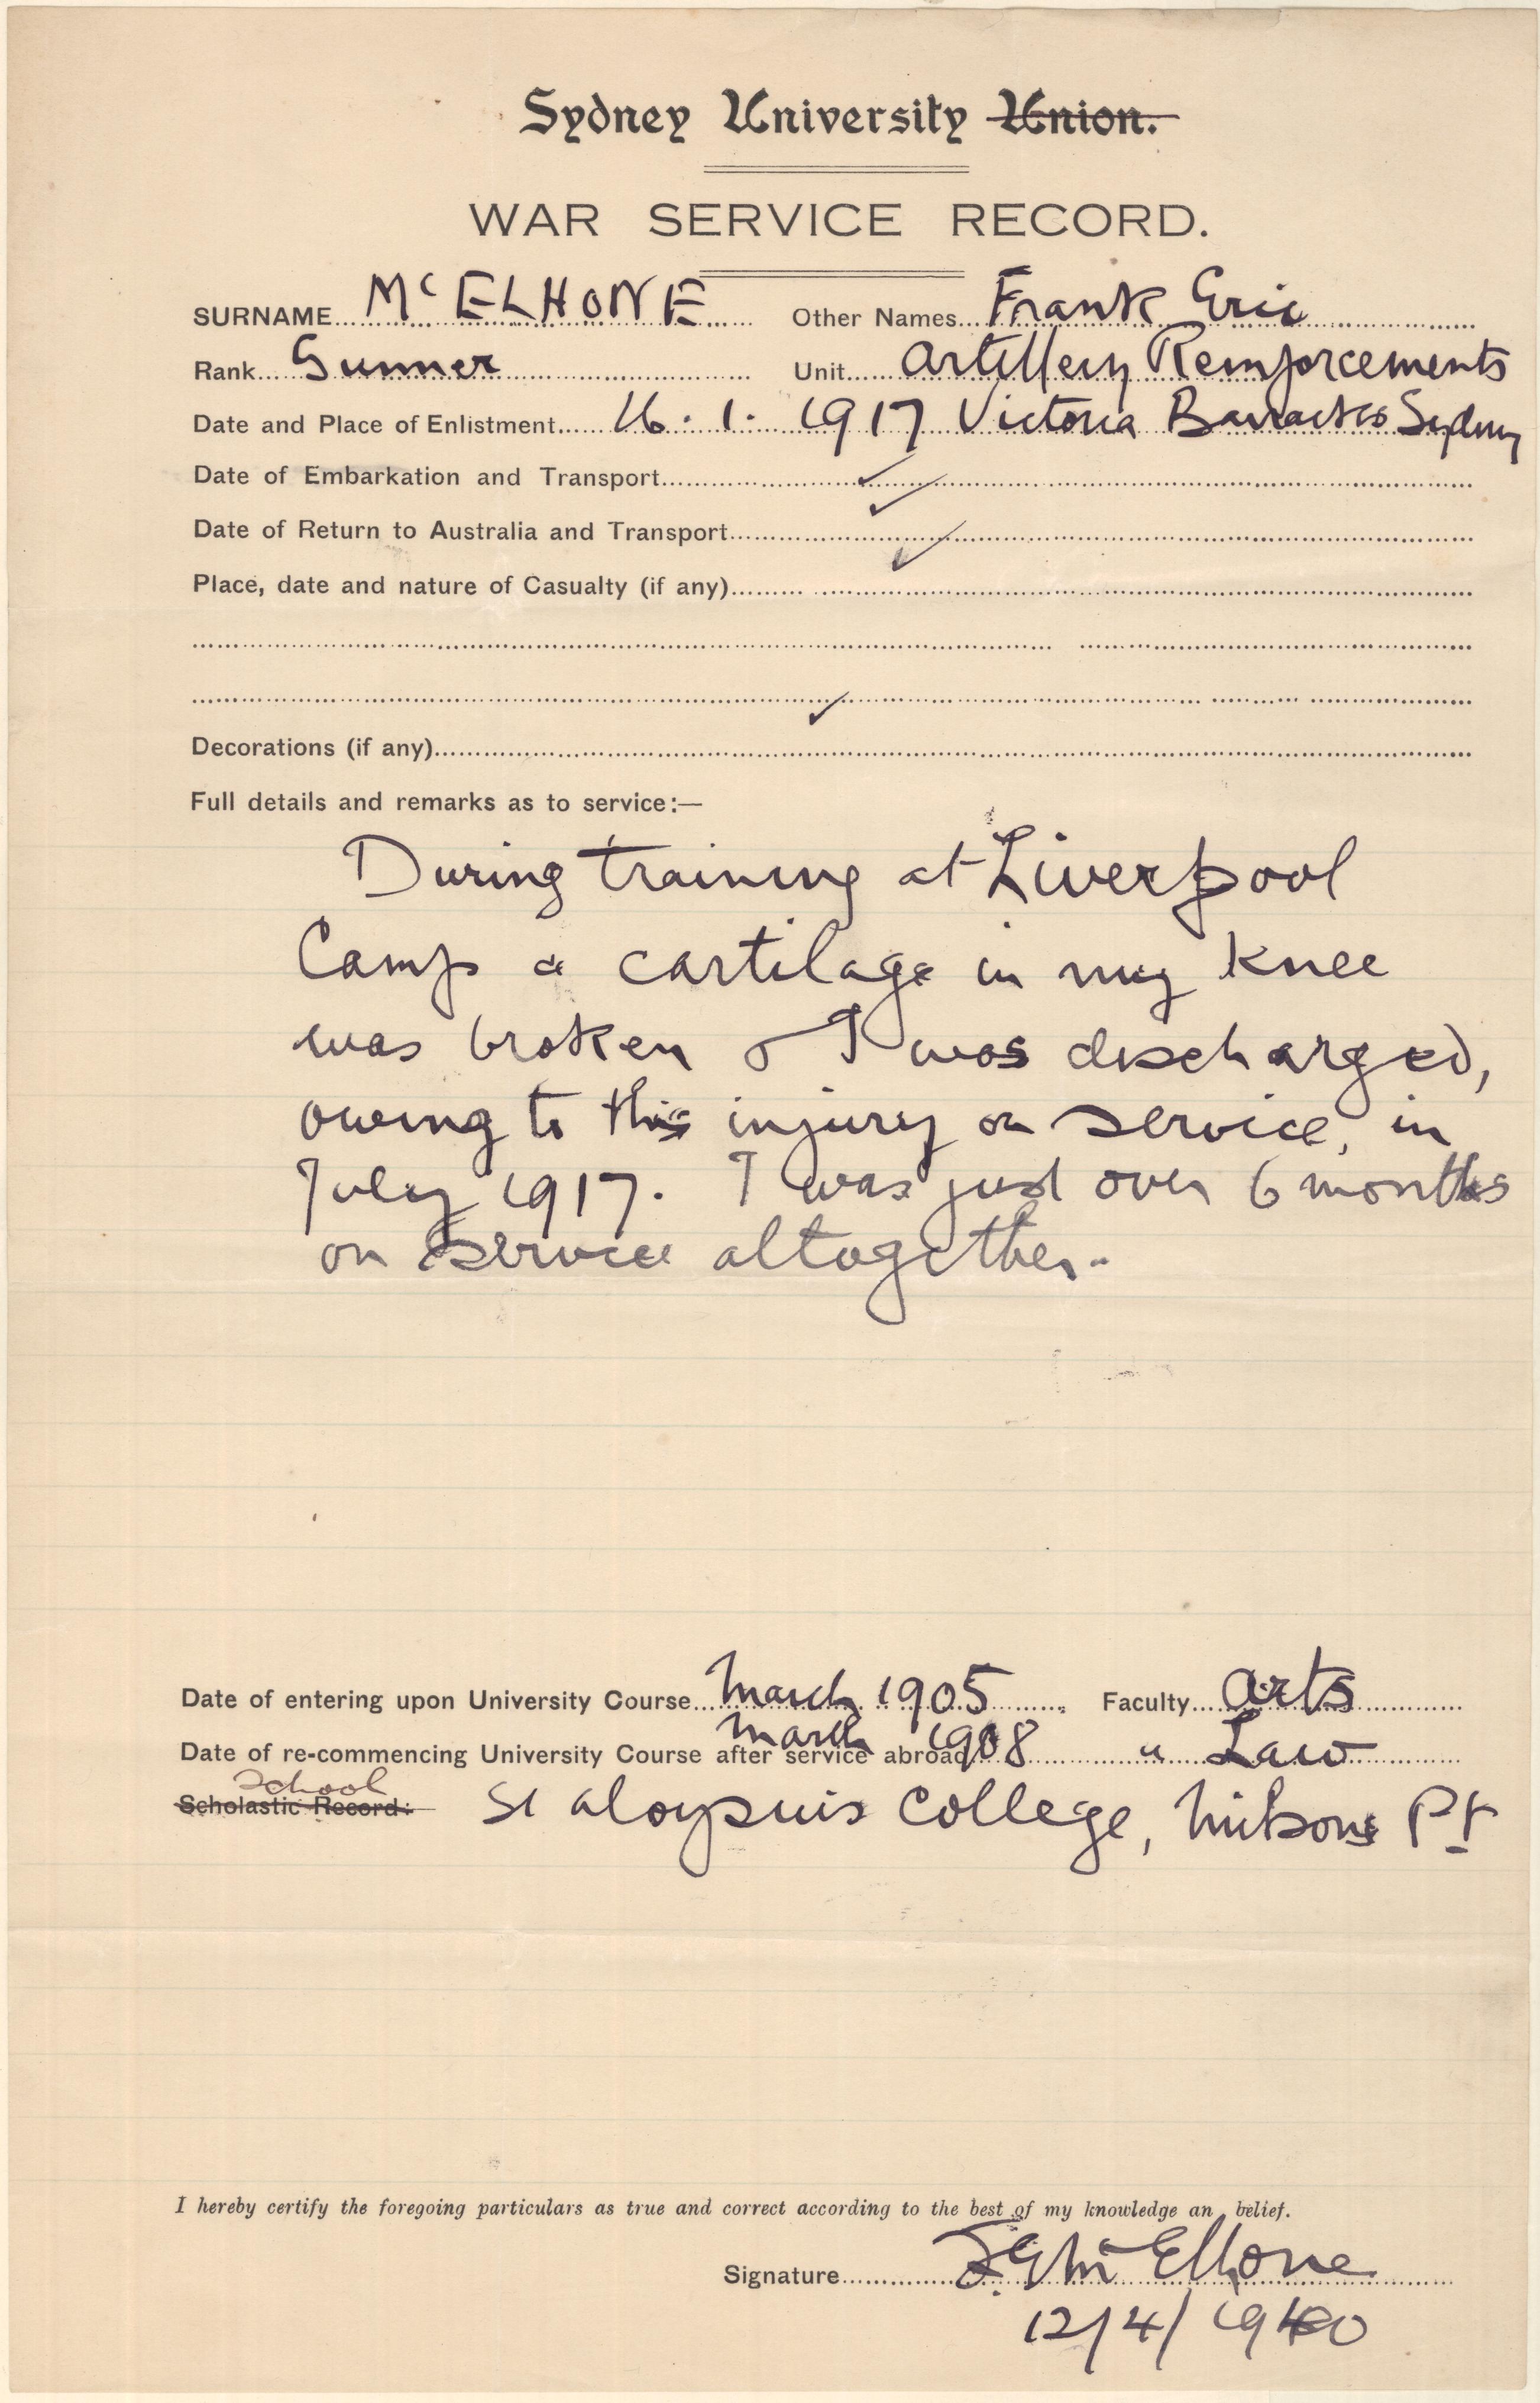 Sydney University Union.
WAR SERVICE RECORD.
SURNAME McELHONE Other Names Frank Eric
Rank Gunner Unit Artillery Reinforcements
Date and Place of Enlistment 16.1.1917 Victoria Barracks Sydney
Date of Embarkation and Transport ✓
Date of Return to Australia and Transport ✓
Place, date and nature of Casualty (if any) ✓
✓
Decorations (if any)
Full details and remarks as to service:—
During training at Liverpool
Camp a cartilage in my knee
was broken & I was discharged,
owing to this injury on service, in
July 1917. I was just over 6 months
on service altogether.
Date of entering upon University Course March 1905 Faculty Arts
Date of re-commencing University Course after service abroad March 1908 " Law
School
Scholastic Record: St Aloysius College, Milsons Pt
I hereby certify the foregoing particulars as true and correct according to the best of my knowledge an belief.
Signature F. E. McElhone
12/4/1940